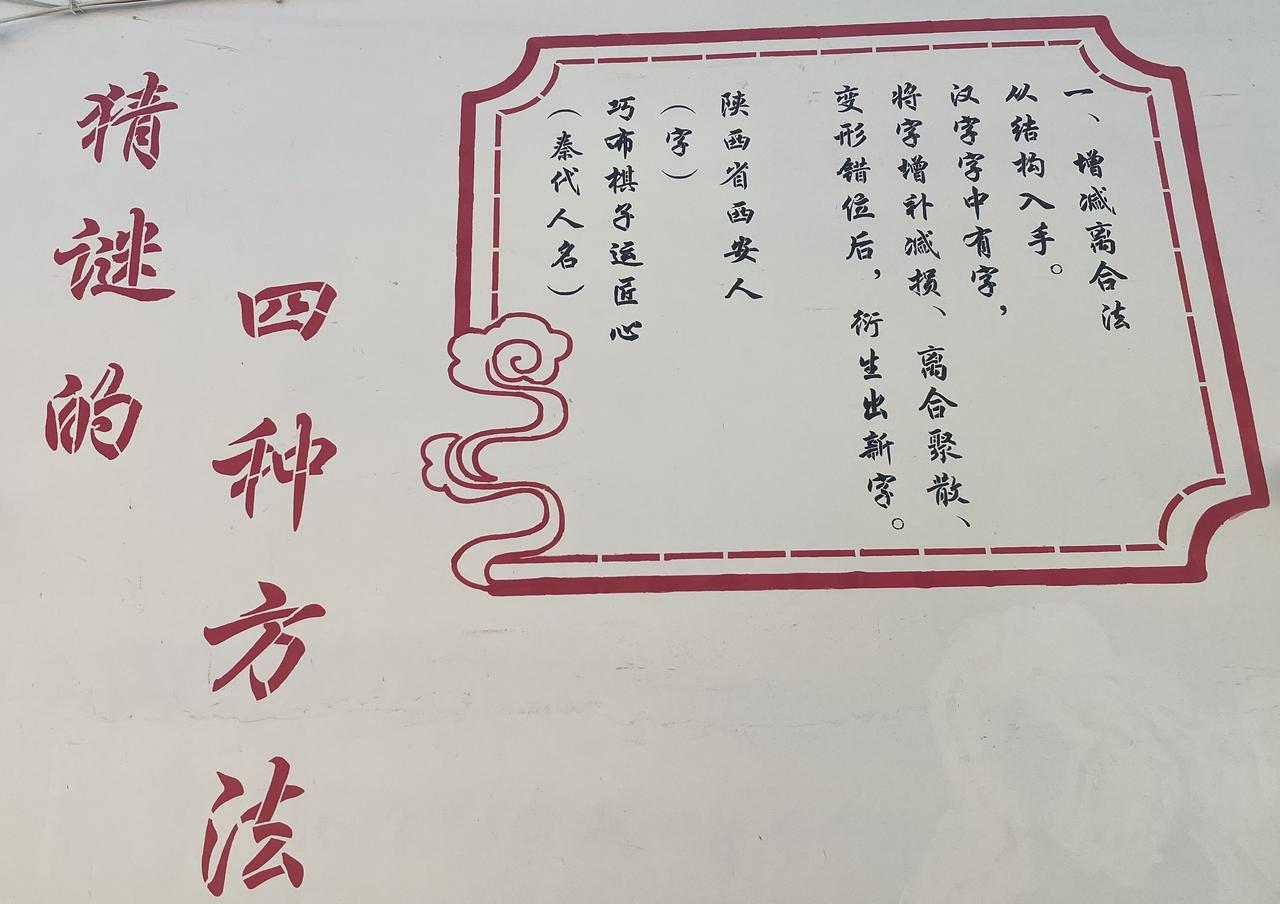 猜谜的
四种方法
一、增减离合法
从结构入手。
汉字字中有字，
将字增补减损、离合聚散、
变形错位后，衍生出新字。
陕西省西安人
（字）
巧布棋子运匠心
（秦代人名）